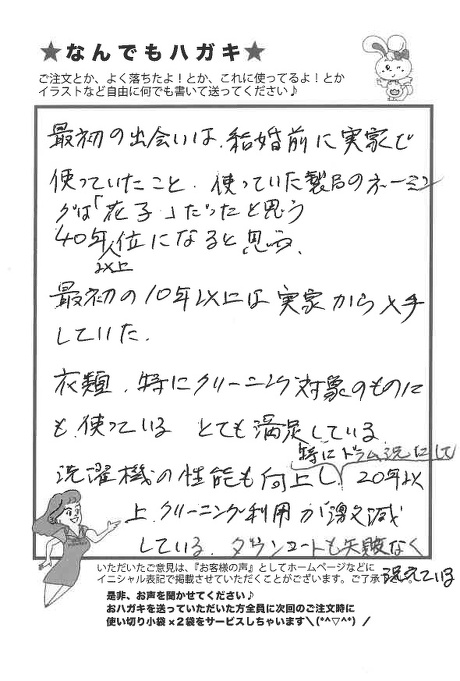 ★なんでもハガキ★
ご注文とか、よく落ちたよ！とか、これに使ってるよ！とか
イラストなど自由に何でも書いて送ってください♪
最初の出会いは、結婚前に実家で
使っていたこと、使っていた製品のネーミン
グは「花子」だったと思う
40年位になると思う、
以上
最初の10年以上は実家から入手
していた、
衣類、特にクリーニング対象のものに
も、使っている とても満足している
特にドラム洗にして
洗濯機の性能も向上し、20年以
上、クリーニング利用が激減
している、ダウンコートも失敗なく
洗えている
いただいたご意見は、『お客様の声』としてホームページなどに
イニシャル表記で掲載させていただくことがございます。ご了承下さい
是非、お声を聞かせてください♪
おハガキを送っていただいた方全員に次回のご注文時に
使い切り小袋×2袋をサービスしちゃいます＼(*^▽^*)／